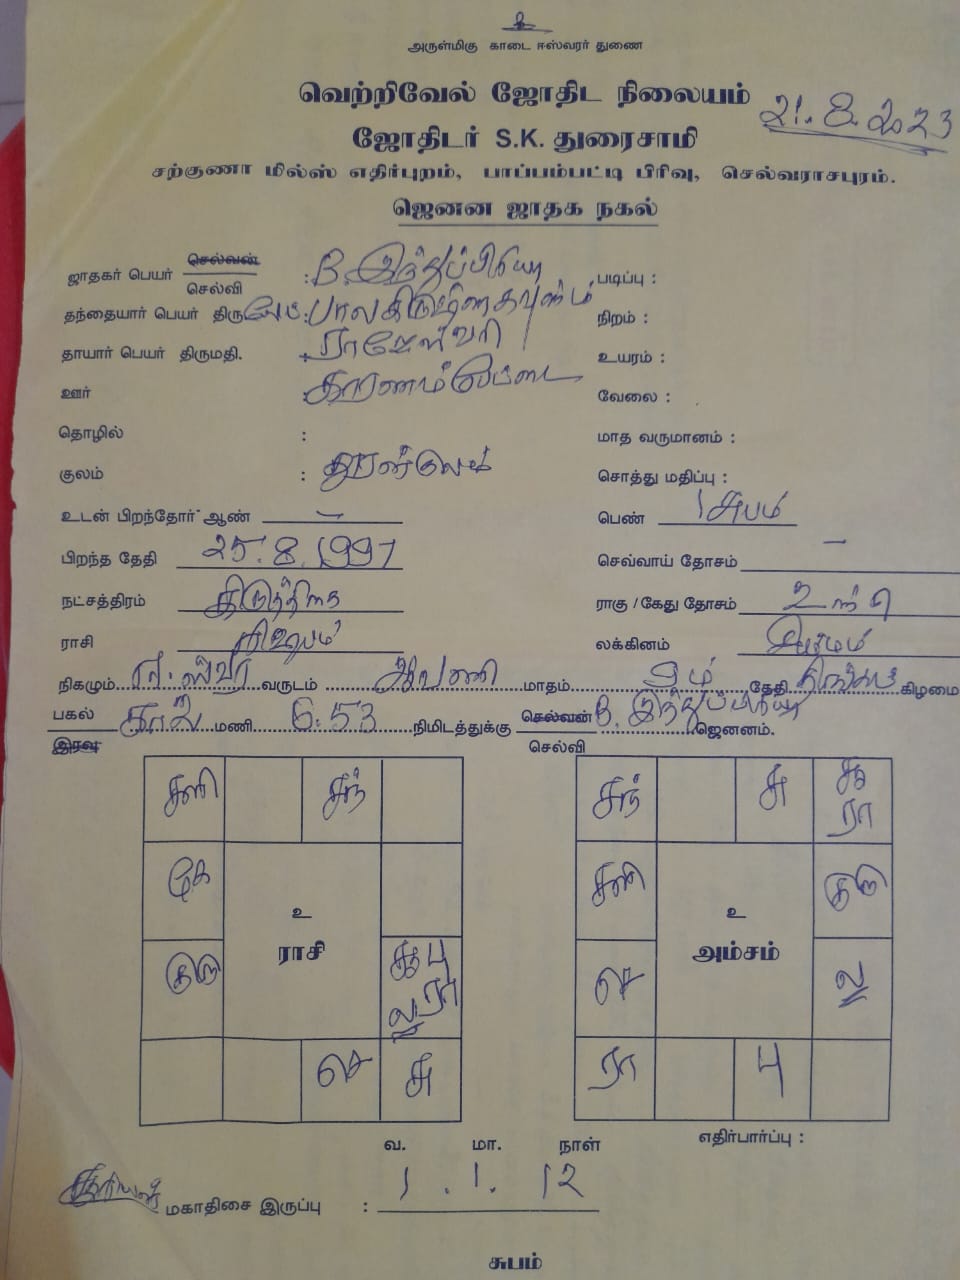 உ
அருள்மிகு காடை ஈஸ்வரர் துணை
வெற்றிவேல் ஜோதிட நிலையம்
21.8.2023
ஜோதிடர் S.K. துரைசாமி
சற்குணா மில்ஸ் எதிர்புறம், பாப்பம்பட்டி பிரிவு, செல்வராசபுரம்.
ஜெனன ஜாதக நகல்
ஜாதகர் பெயர் செல்வன் / செல்வி : B. இந்துப்பிரியா படிப்பு :
தந்தையார் பெயர் திரு : பாலகிருஷ்ண கவுண்டர் நிறம் :
தாயார் பெயர் திருமதி. : ராஜேஸ்வரி உயரம் :
ஊர் : காரணம்பேட்டை வேலை :
தொழில் : மாத வருமானம் :
குலம் : சொத்து மதிப்பு :
உடன் பிறந்தோர் ஆண் – பெண் 1 சுபம்
பிறந்த தேதி 25.8.1997 செவ்வாய் தோசம் –
நட்சத்திரம் கிருத்திகை ராகு / கேது தோசம் உண்டு
ராசி ரிஷபம் லக்கினம் சிம்மம்
நிகழும் ஈஸ்வர வருடம் ஆவணி மாதம் தேதி திங்கள் கிழமை
பகல் / இரவு காலை மணி 6:53 நிமிடத்துக்கு செல்வன் / செல்வி B. இந்துப்பிரியா ஜெனனம்.
சனி சந்
கே
குரு
சூ பு
ல ரா
செ சு
உ
ராசி
சந் சு சூ
ரா
சனி குரு
செ ல
ரா பு
உ
அம்சம்
எதிர்பார்ப்பு :
வ. மா. நாள்
சூரியன் மகாதிசை இருப்பு : 1 . 1 . 12
சுபம்